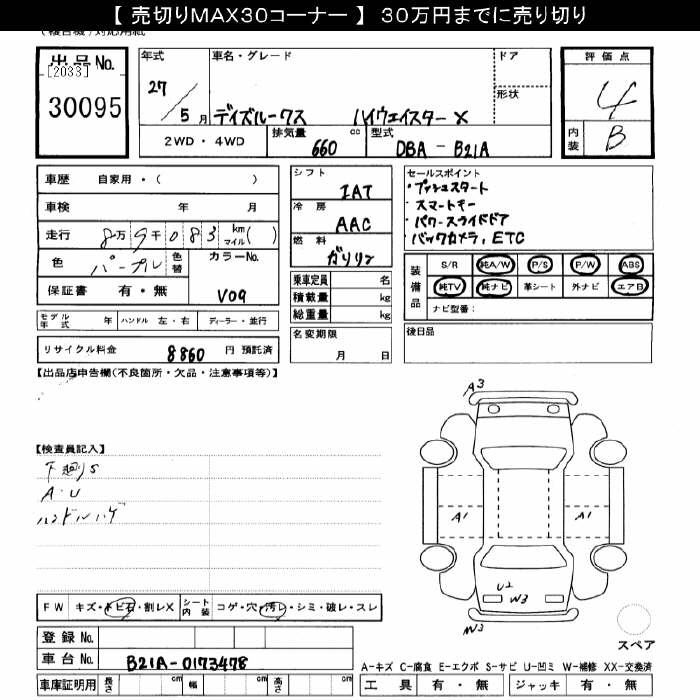 【 売切りMAX30コーナー 】 30万円までに売り切り
(複合機)対応用紙
出品No.
[2033]
30095
年式 27/5月
車名・グレード デイズルークス ハイウェイスター X
ドア
形状
2WD・4WD
排気量 660 cc
型式 DBA-B21A
評価点 4
内装 B
車歴 自家用・( )
車検 年 月
走行 8万9千083 km マイル( )
色 パープル 色替
カラーNo. V09
保証書 有・無
モデル年式 年 ハンドル 左・右 ディーラー・並行
リサイクル料金 8860 円 預託済
シフト IAT
冷房 AAC
燃料 ガソリン
乗車定員 名
積載量 kg
総重量 kg
名変期限 月 日
セールスポイント
・プッシュスタート
・スマートキー
・パワースライドドア
・バックカメラ, ETC
装備品
S/R 純A/W P/S P/W ABS
純TV 純ナビ 革シート 外ナビ エアB
ナビ型番:
後日品
【出品店申告欄(不良箇所・欠品・注意事項等)】
【検査員記入】
下廻りS
A・U
ハンドルハゲ
A3
A1
A1
U2
W3
W3
スペア
FW キズ・トビ石・割レX
シート内装 コゲ・穴・汚レ・シミ・破レ・スレ
登録No.
車台No. B21A-0173478
車庫証明用 長さ cm 幅 cm 高さ cm
A-キズ C-腐食 E-エクボ S-サビ U-凹ミ W-補修 XX-交換済
工具 有・無 ジャッキ 有・無